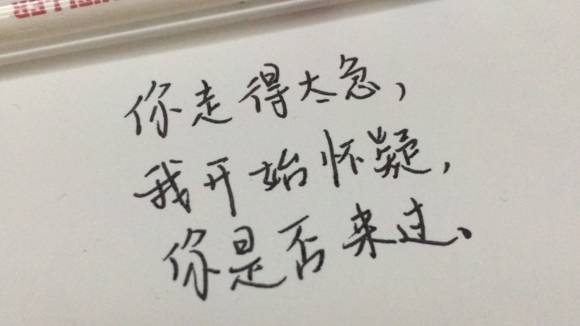 你走得太急，
我开始怀疑，
你是否来过。